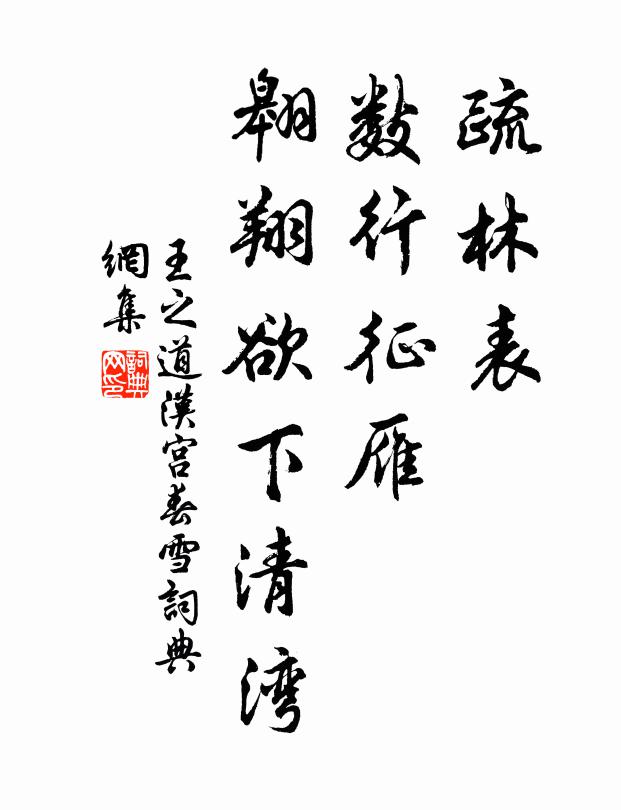 疏林表
数行征雁
翱翔欲下清湾
王之道漢宫春雪詞典
網集
詞典
网印